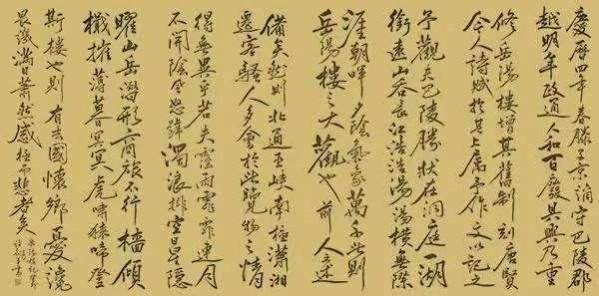 慶曆四年春滕子京謫守巴陵郡
越明年政通人和百廢具興乃重
修岳陽樓增其舊制刻唐賢
今人詩賦於其上屬予作文以記之
予觀夫巴陵勝狀在洞庭一湖
銜遠山吞長江浩浩湯湯橫無際
涯朝暉夕陰氣象萬千此則
岳陽樓之大觀也前人之述
備矣然則北通巫峽南極瀟湘
遷客騷人多會於此覽物之情
得無異乎若夫霪雨霏霏連月
不開陰風怒號濁浪排空日星隱
曜山岳潛形商旅不行檣傾
檝摧薄暮冥冥虎嘯猿啼登
斯樓也則有去國懷鄉憂讒
畏譏滿目蕭然感極而悲者矣